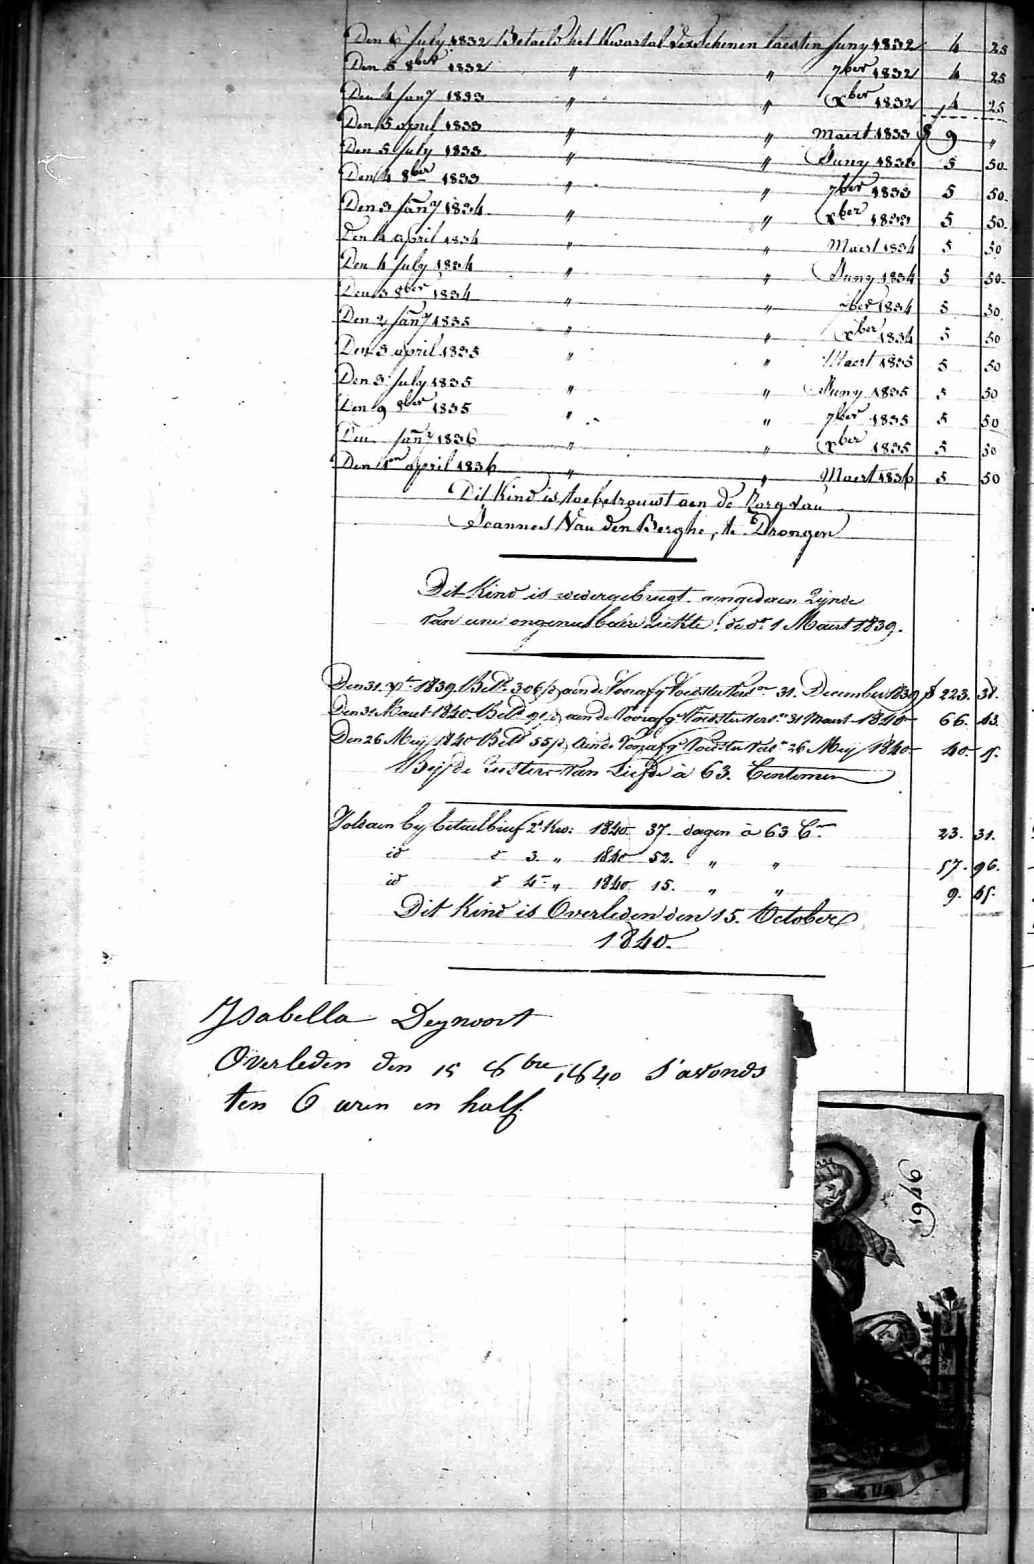 Den 6 July 1832 Betaelt het Kwartal verschenen laesten Juny 1832 4 25
Den 5 8ber 1832 " " 7ber 1832 4 25
Den 4 Jany 1833 " " Xber 1832 4 25
Den 5 april 1833 " " Maert 1833 9 "
Den 5 July 1833 " " Juny 1833 5 50
Den 4 8ber 1833 " " 7ber 1833 5 50
Den 3 Jany 1834 " " Xber 1833 5 50
Den 4 april 1834 " " Maert 1834 5 50
Den 4 July 1834 " " Juny 1834 5 50
Den 3 8ber 1834 " " 7ber 1834 5 50
Den 2 Jany 1835 " " Xber 1834 5 50
Den 3 april 1835 " " Maert 1835 5 50
Den 3 July 1835 " " Juny 1835 5 50
Den 9 8ber 1835 " " 7ber 1835 5 50
Den Jany 1836 " " Xber 1835 5 50
Den 1en april 1836 " " Maert 1836 5 50
Dit Kind is toebetrouwt aen de Zorg van
Joannes Van den Berghe, te Drongen
Dit Kind is wedergebragt aengedaen zijnde
van eene ongeneesbaere ziekte de 1 Maert 1839.
Den 31 1839 Bet. 306 aen de Voorzg Voedster 31 December 1839 223. 38.
Den 31 Maert 1840 Bet. 91 aen de Voorzg Voedster 31 Maert 1840 66. 43.
Den 26 Meij 1840 Bet. 55 Aen de Voorzg Voedster 26 Meij 1840 40. 15.
Bij de Zusters van Liefde à 63. Centimen
Voldaen by betaelbrief 2e Kw: 1840 37. dagen à 63 Cen 23. 31.
id 3. " 1840 52. " " 57. 96.
id 4e " 1840 15. " " 9. 45.
Dit Kind is Overleden den 15. October
1840.
Ysabella Deynoort
Overleden den 15 8bre 1840 s'avonds
ten 6 uren en half
1946